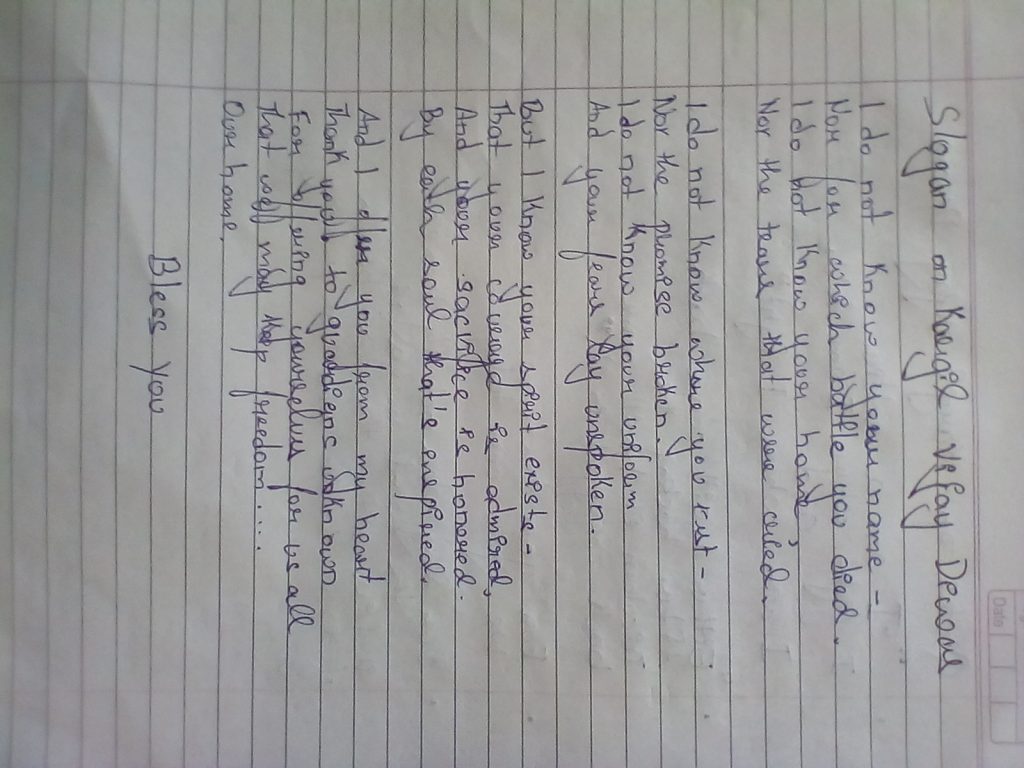 Date
Slogan on Kargil Vijay Diwas
I do not know your name -
Nor for which battle you died.
I do not know your home,
Nor the tears that were cried.
I do not know where you rest -
Nor the promise broken.
I do not know your uniform
And your fears lay unspoken.
But I know your spirit exists -
That your courage is admired,
And your sacrifice is honored.
By each soul that's inspired.
And I from my heart
Thank you, to unknown
For offering yourselves for us all
That well may keep freedom....
Our home.
Bless you